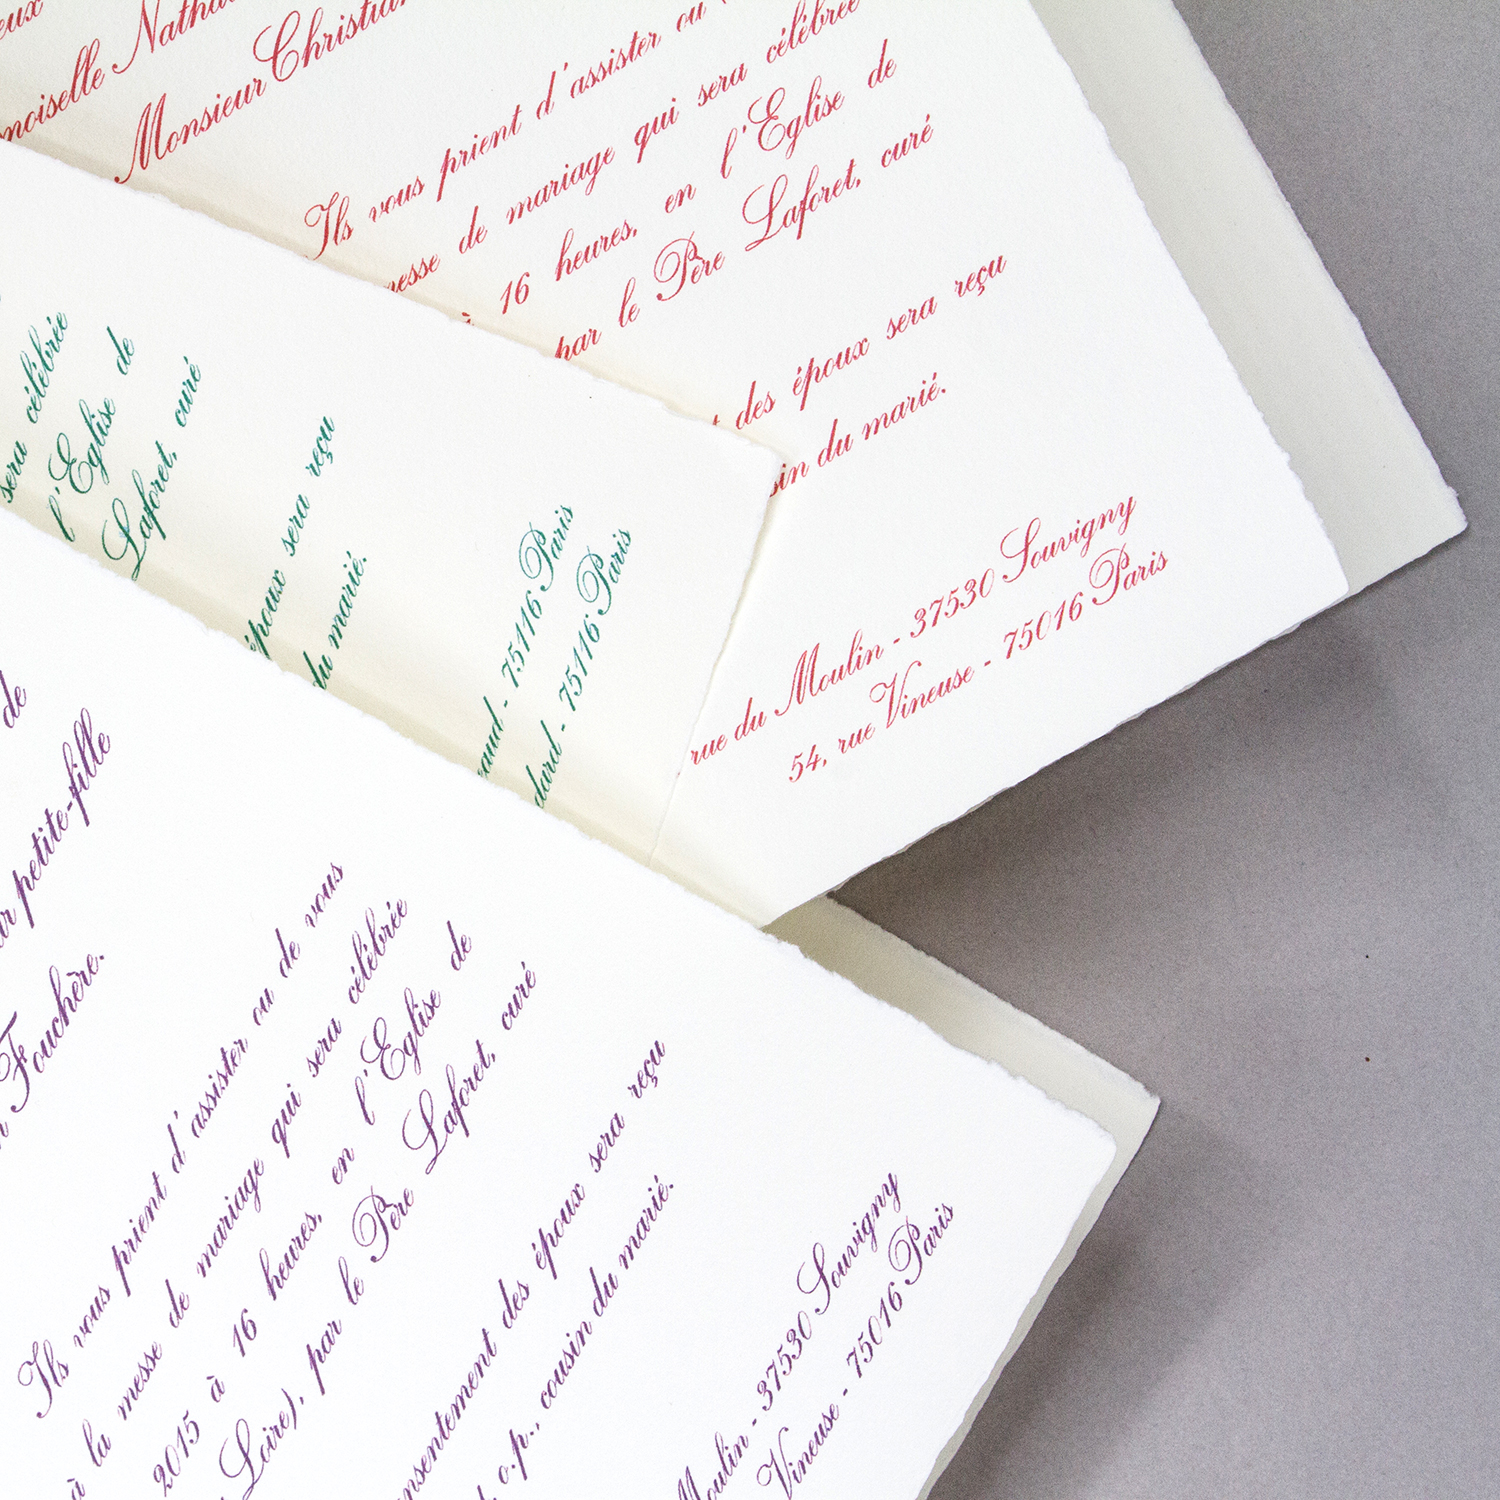 Monsieur Christian
Ils vous prient d'assister ou
de mariage qui sera célébrée
16 heures, en l'Eglise de
par le Père Laforet, curé
des époux sera reçu
du marié.
rue du Moulin - 37530 Souvigny
54, rue Vineuse - 75016 Paris
sera célébrée
l'Eglise de
Laforet, curé
époux sera reçu
du marié.
- 75116 Paris
- 75116 Paris
de
petite-fille
Fouchère.
Ils vous prient d'assister ou de vous
à la messe de mariage qui sera célébrée
2015 à 16 heures, en l'Eglise de
Loire), par le Père Laforet, curé
des époux sera reçu
o.p., cousin du marié.
Moulin - 37530 Souvigny
Vineuse - 75016 Paris